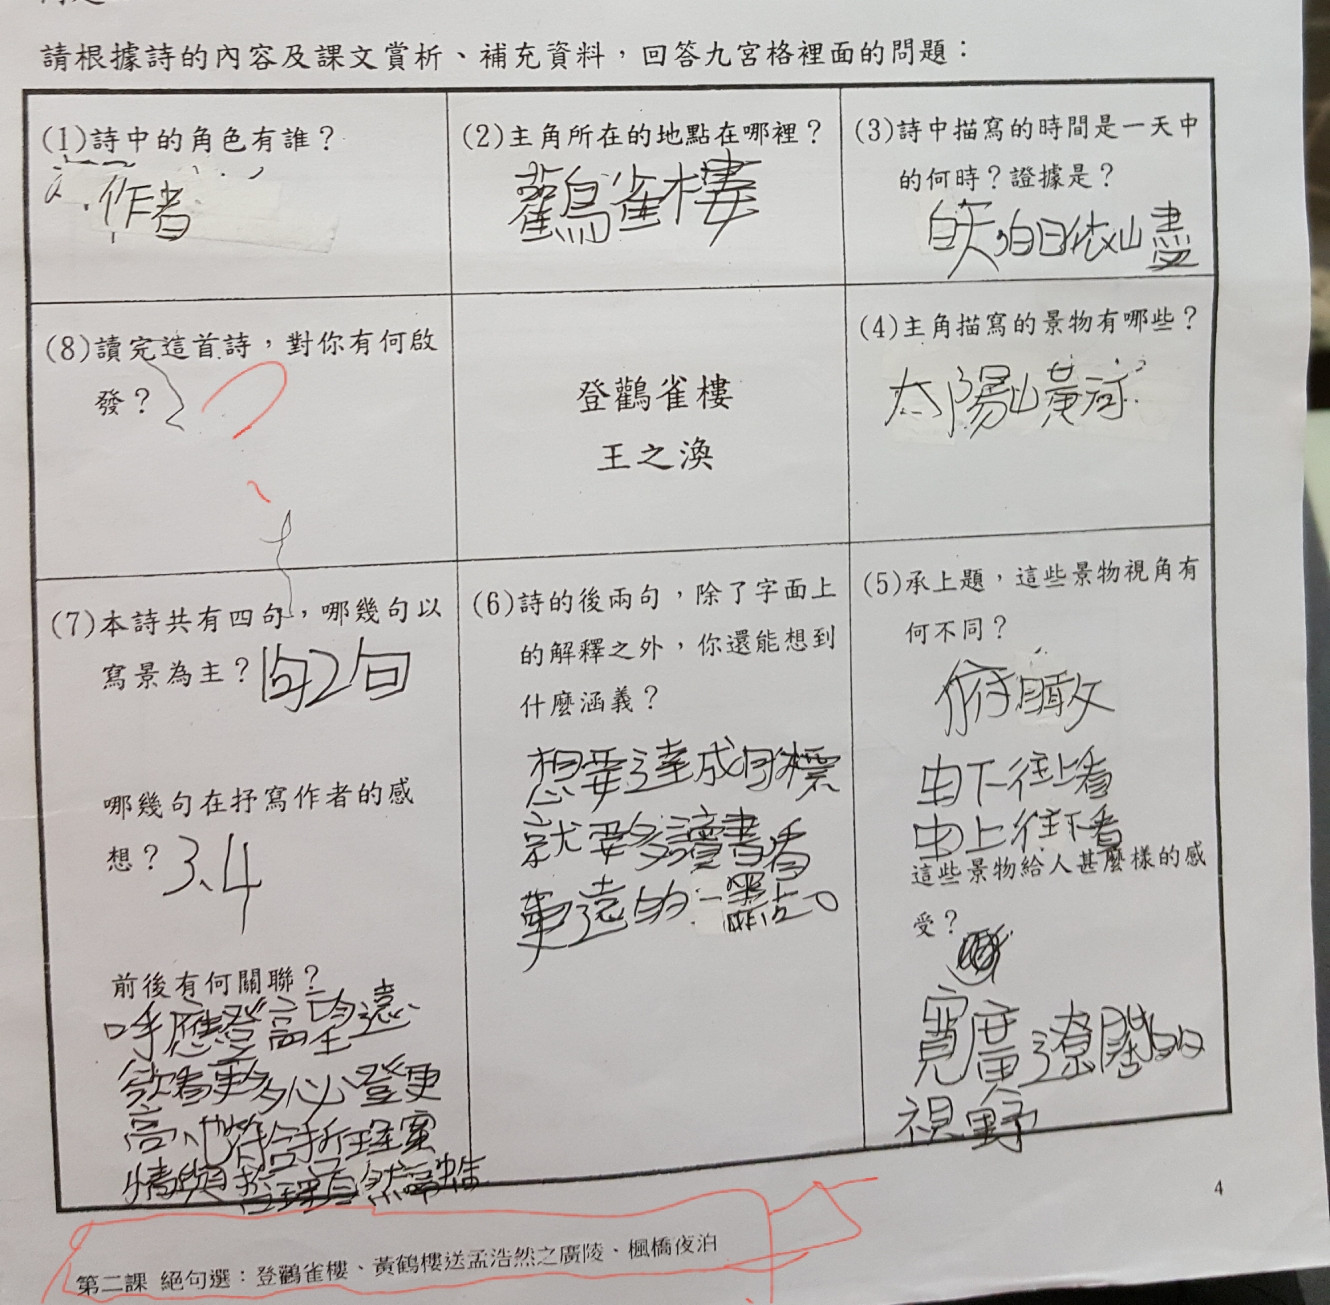 請根據詩的內容及課文賞析、補充資料，回答九宮格裡面的問題：
(1)詩中的角色有誰？
作者
(2)主角所在的地點在哪裡？
鸛雀樓
(3)詩中描寫的時間是一天中
的何時？證據是？
白天,白日依山盡
(8)讀完這首詩，對你有何啟
發？
登鸛雀樓
王之渙
(4)主角描寫的景物有哪些？
太陽山黃河
(7)本詩共有四句，哪幾句以
寫景為主？1句2句
哪幾句在抒寫作者的感
想？3、4
前後有何關聯？
呼應登高望遠、
欲看更多必登更
高
情與
(6)詩的後兩句，除了字面上
的解釋之外，你還能想到
什麼涵義？
想要達成目標
就要多讀書看
更遠的一點。
(5)承上題，這些景物視角有
何不同？
俯瞰
由下往上看
由上往下看
這些景物給人甚麼樣的感
受？
寬廣遼闊的
視野
4
第二課 絕句選：登鸛雀樓、黃鶴樓送孟浩然之廣陵、楓橋夜泊